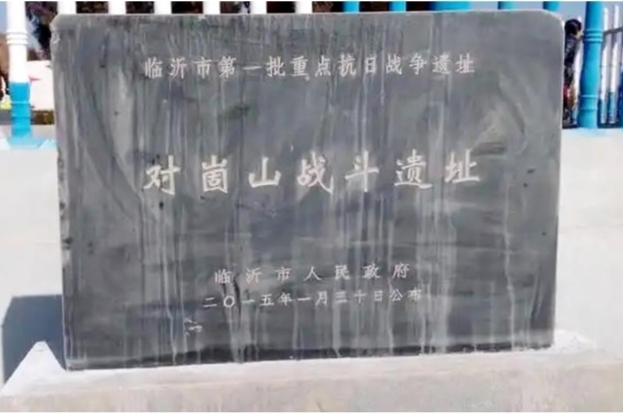 临沂市第一批重点抗日战争遗址
对崮山战斗遗址
临沂市人民政府
二〇一五年一月三十日公布